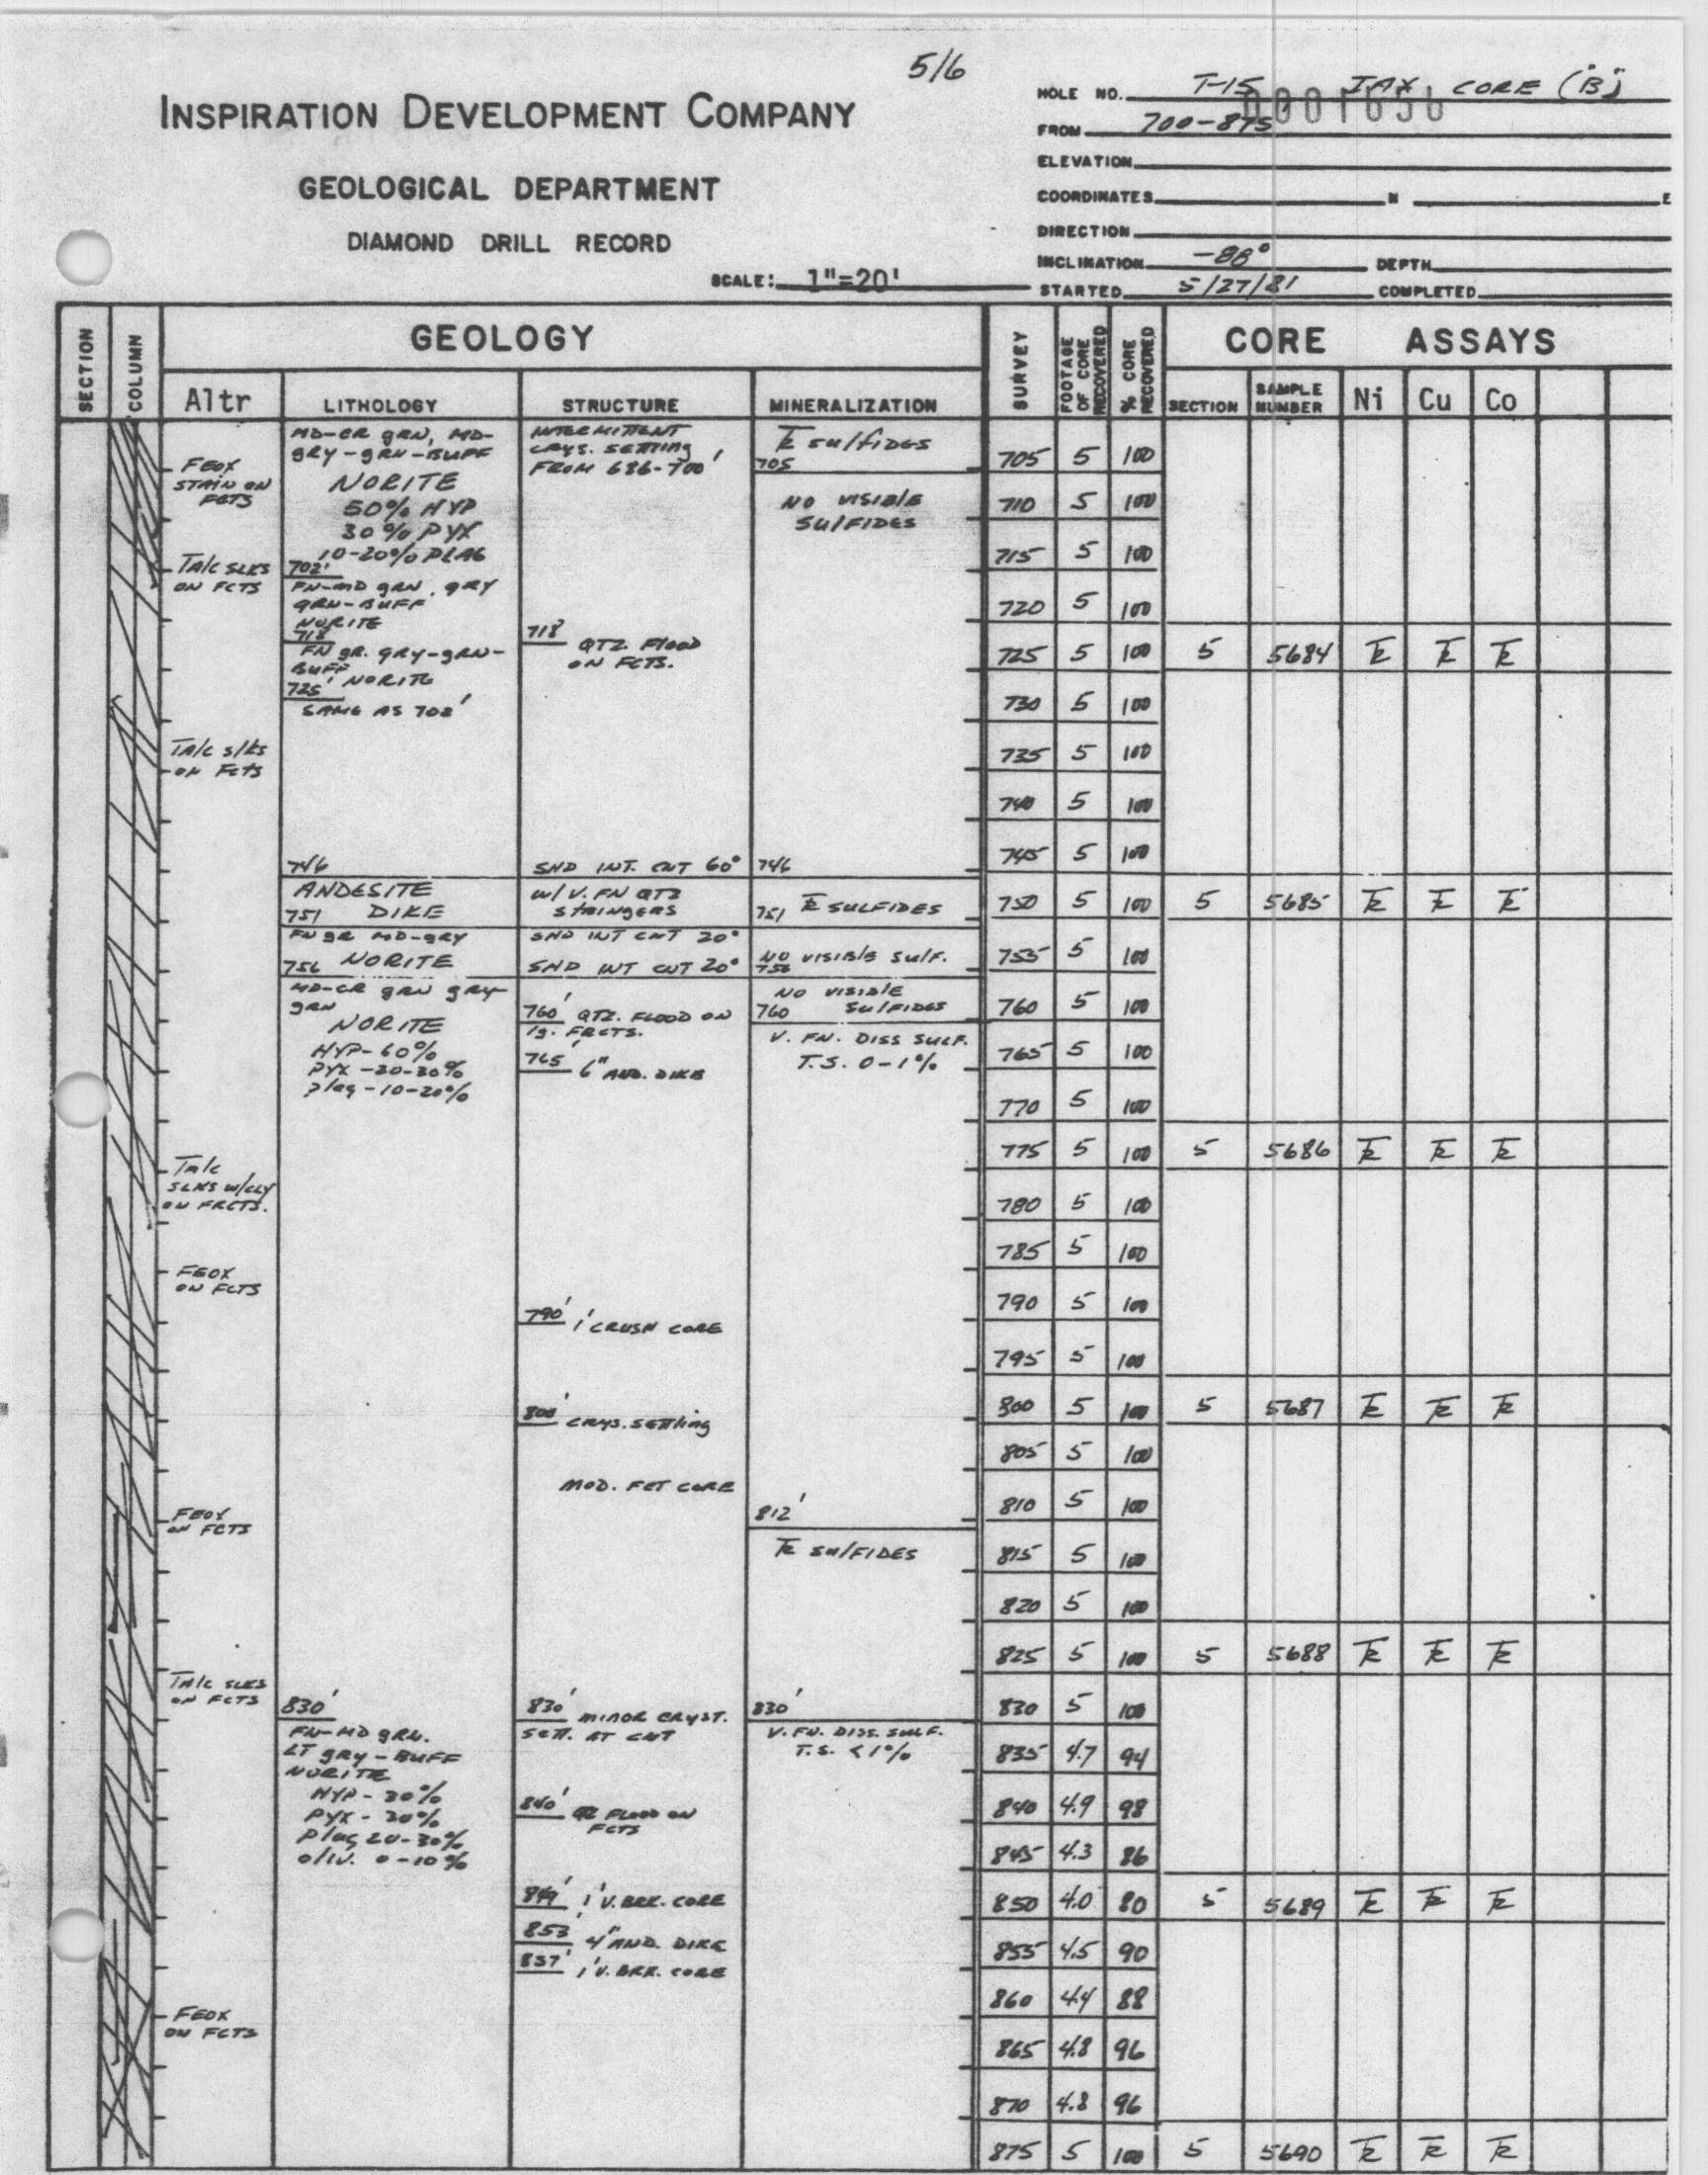 5/6
INSPIRATION DEVELOPMENT COMPANY
GEOLOGICAL DEPARTMENT
DIAMOND DRILL RECORD
SCALE: 1"=20'
HOLE NO. T-15 IAX CORE ("B")
FROM 700-875
ELEVATION
COORDINATES N E
DIRECTION
INCLINATION -88° DEPTH
STARTED 5/27/81 COMPLETED
SECTION COLUMN GEOLOGY SURVEY FOOTAGE OF CORE RECOVERED % CORE RECOVERED CORE ASSAYS
Altr LITHOLOGY STRUCTURE MINERALIZATION SECTION SAMPLE NUMBER Ni Cu Co
FEOX
STAIN ON
FCTS
TALC SLKS
ON FCTS
TALC SLKS
ON FCTS
TALC
SLKS W/CLY
ON FRCTS.
FEOX
ON FCTS
FEOX
ON FCTS
TALC SLKS
ON FCTS
FEOX
ON FCTS
MD-CR GRN, MD-
GRY-GRN-BUFF
NORITE
50% HYP
30% PYX
10-20% PLAG
702'
FN-MD GRN, GRY
GRN-BUFF
NORITE
718
FN GR. GRY-GRN-
BUFF
725' NORITE
SAME AS 702'
746
ANDESITE
751 DIKE
FN GR MD-GRY
756 NORITE
MD-CR GRN GRY
GRN
NORITE
HYP-60%
PYX-20-30%
Plag-10-20%
830'
FN-MD GRN.
LT GRY-BUFF
NORITE
HYP-30%
PYX-30%
Plag 20-30%
OLIV. 0-10%
INTERMITTENT
CRYS. SETTLING
FROM 686-700'
718' QTZ. FLOOD
ON FCTS.
SHD INT. CNT 60°
W/V. FN QTZ
STRINGERS
SHD INT CNT 20°
SHD INT CNT 20°
760' QTZ. FLOOD ON
lg. FRCTS.
765' 6" AND. DIKE
790' 1' CRUSH CORE
800' CRYS. SETTLING
MOD. FCT CORE
830' MINOR CRYST.
SETT. AT CNT
840' QZ FLOOD ON
FCTS
849' 1' V. BRK. CORE
853' 4" AND. DIKE
857' 1' V. BRK. CORE
TR SULFIDES
705
NO VISIBLE
SULFIDES
746
751 TR SULFIDES
NO VISIBLE SULF.
756
NO VISIBLE
760 SULFIDES
V. FN. DISS SULF.
T.S. 0-1%
812'
TR SULFIDES
830'
V. FN. DISS. SULF.
T.S. <1%
705 5 100
710 5 100
715 5 100
720 5 100
725 5 100 5 5684 TR TR TR
730 5 100
735 5 100
740 5 100
745 5 100
750 5 100 5 5685 TR TR TR
755 5 100
760 5 100
765 5 100
770 5 100
775 5 100 5 5686 TR TR TR
780 5 100
785 5 100
790 5 100
795 5 100
800 5 100 5 5687 TR TR TR
805 5 100
810 5 100
815 5 100
820 5 100
825 5 100 5 5688 TR TR TR
830 5 100
835 4.7 94
840 4.9 98
845 4.3 86
850 4.0 80 5 5689 TR TR TR
855 4.5 90
860 4.4 88
865 4.8 96
870 4.8 96
875 5 100 5 5690 TR TR TR